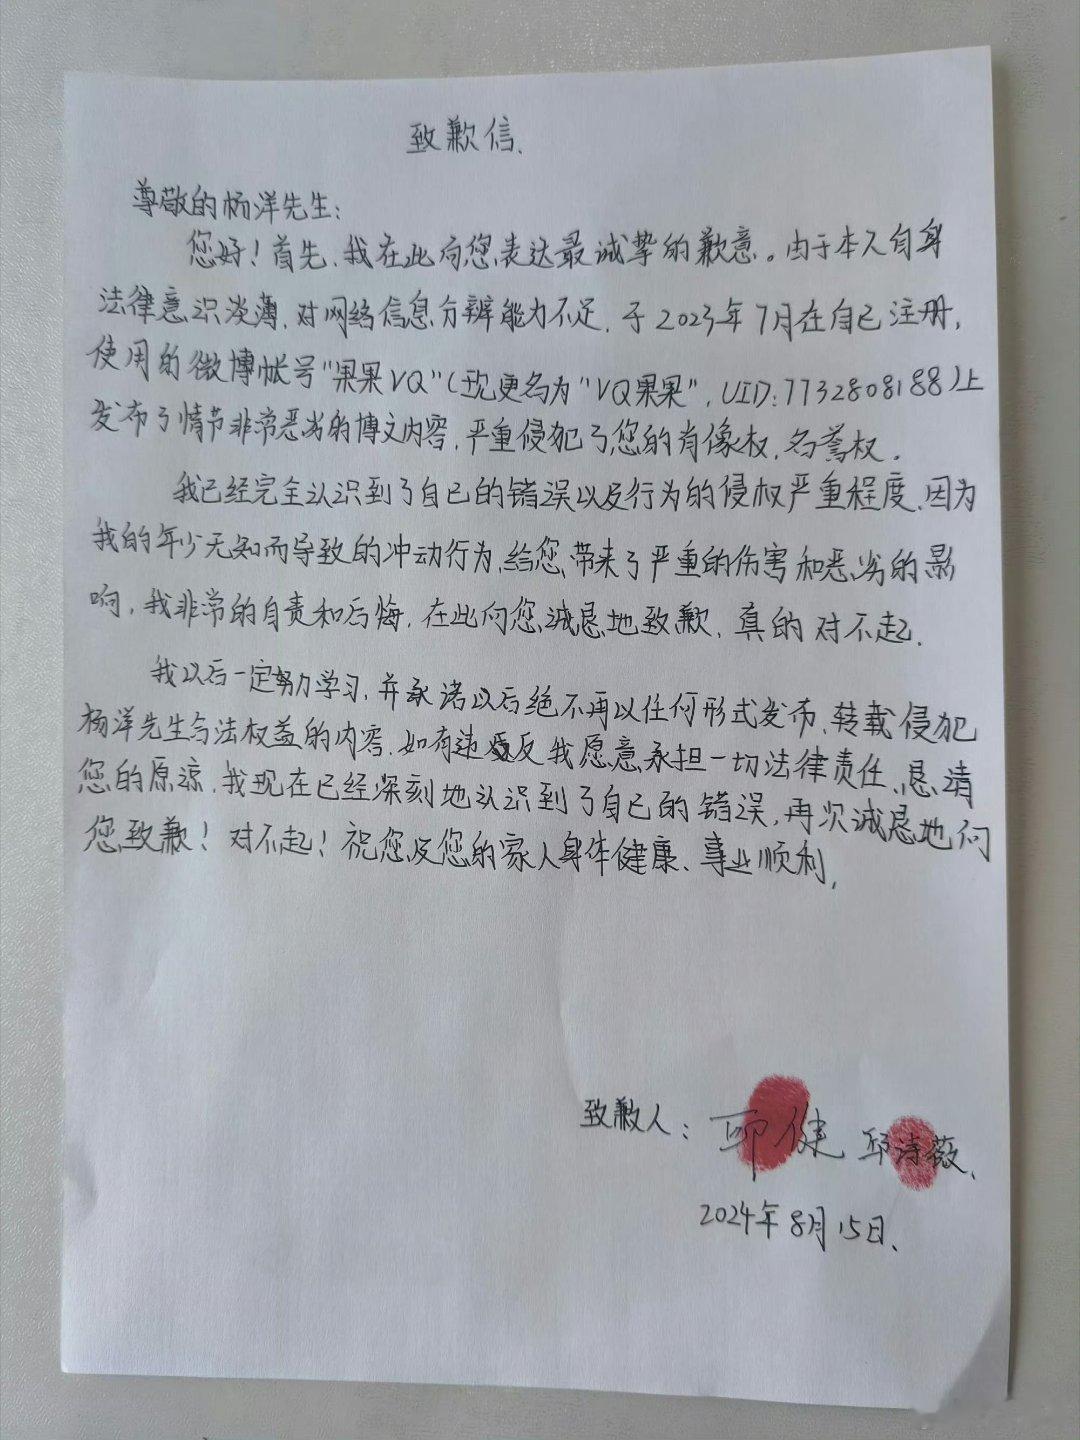 致歉信.
尊敬的杨洋先生:
您好!首先,我在此向您表达最诚挚的歉意。由于本人自身
法律意识淡薄,对网络信息分辨能力不足,于2023年7月在自己注册,
使用的微博帐号"果果VQ"(现更名为"VQ果果",UID:7732808188)上
发布了情节非常恶劣的博文内容,严重侵犯了您的肖像权,名誉权.
我已经完全认识到了自己的错误以及行为的侵权严重程度,因为
我的年少无知而导致的冲动行为,给您带来了严重的伤害和恶劣的影
响,我非常的自责和后悔,在此向您诚恳地致歉,真的对不起.
我以后一定努力学习,并承诺以后绝不再以任何形式发布、转载侵犯
杨洋先生合法权益的内容,如有违反我愿意承担一切法律责任,恳请
您的原谅,我现在已经深刻地认识到了自己的错误,再次诚恳地向
您致歉!对不起!祝您及您的家人身体健康、事业顺利,
致歉人: 健 邱诗薇.
2024年8月15日.